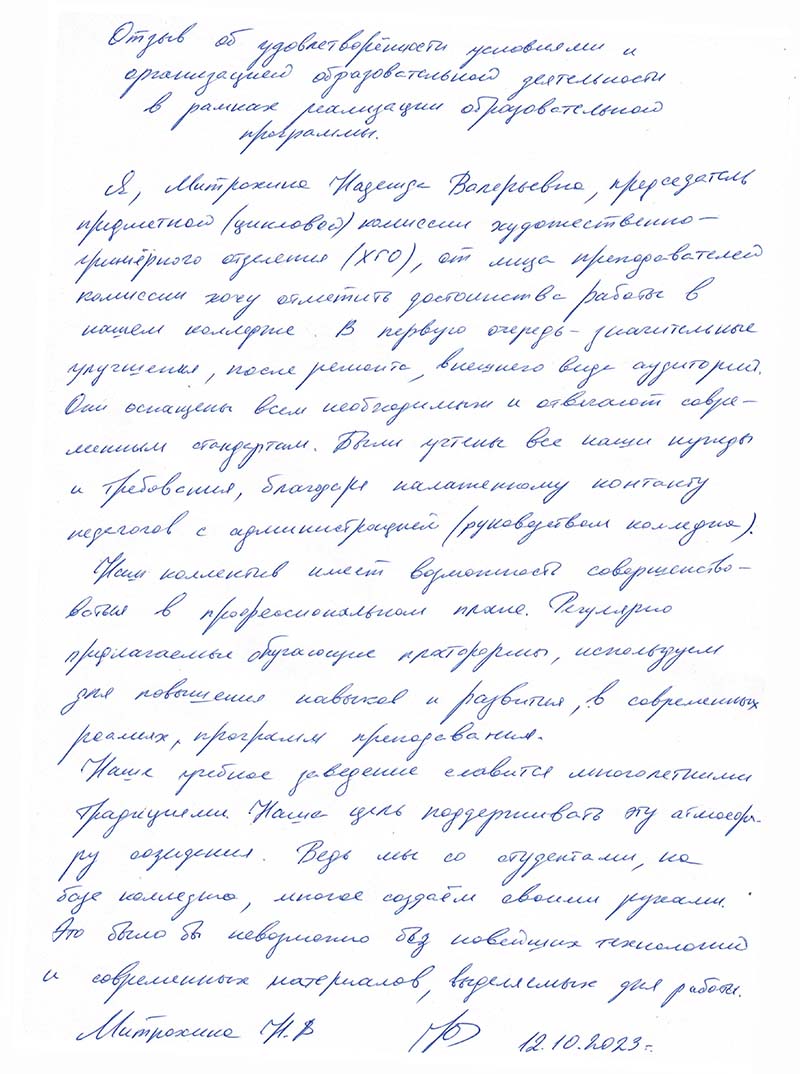 Отзыв об удовлетворённости условиями и
организацией образовательной деятельности
в рамках реализации образовательной
программы.
Я, Митрохина Надежда Валерьевна, председатель
предметной (цикловой) комиссии художественно-
гримёрного отделения (ХГО), от лица преподавателей
комиссии хочу отметить достоинства работы в
нашем колледже. В первую очередь - значительные
улучшения, после ремонта, внешнего вида аудиторий.
Они оснащены всем необходимым и отвечают совре-
менным стандартам. Были учтены все наши нужды
и требования, благодаря налаженному контакту
педагогов с администрацией (руководством колледжа).
Наш коллектив имеет возможность совершенство-
ваться в профессиональном плане. Регулярно
предлагаемые обучающие платформы, используем
для повышения навыков и развития, в современных
реалиях, программ преподавания.
Наше учебное заведение славится многолетними
традициями. Наша цель поддерживать эту атмосфе-
ру созидания. Ведь мы со студентами, на
базе колледжа, многое создаём своими руками.
Это было бы невозможно без новейших технологий
и современных материалов, выделяемых для работы.
Митрохина Н.В 12.10.2023г.